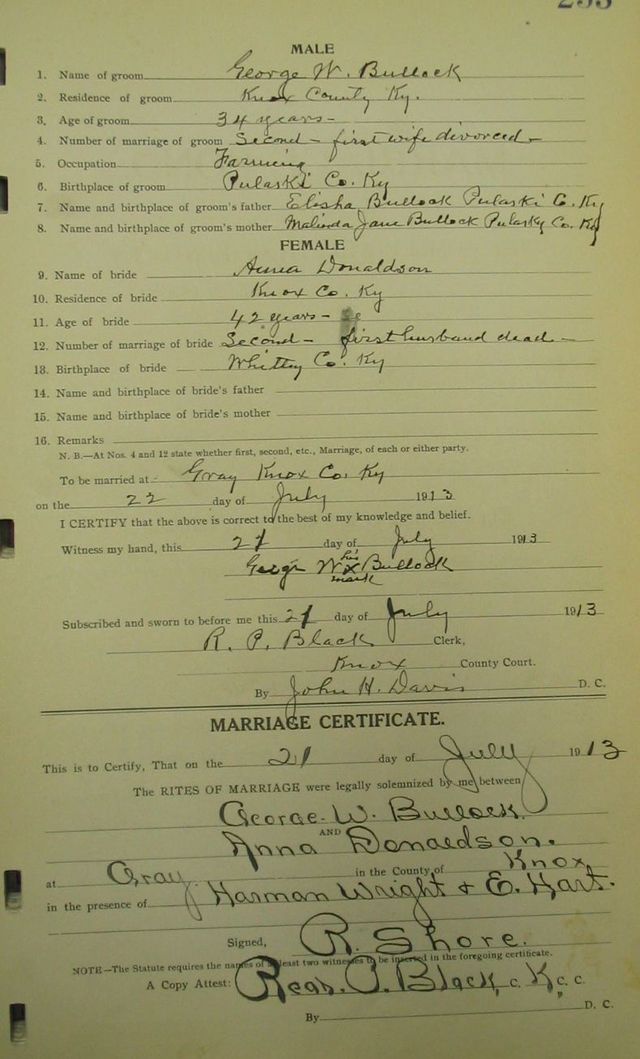 MALE
1. Name of groom George W. Bullock
2. Residence of groom Knox County Ky.
3. Age of groom 34 years -
4. Number of marriage of groom Second - first wife divorced -
5. Occupation Farming
6. Birthplace of groom Pulaski Co. Ky
7. Name and birthplace of groom's father Elisha Bullock Pulaski Co. Ky
8. Name and birthplace of groom's mother Malinda Jane Bullock Pulasky Co. Ky
FEMALE
9. Name of bride Anna Donaldson
10. Residence of bride Knox Co. Ky
11. Age of bride 42 years -
12. Number of marriage of bride Second - first husband dead -
13. Birthplace of bride Whitley Co. Ky
14. Name and birthplace of bride's father
15. Name and birthplace of bride's mother
16. Remarks
N. B.—At Nos. 4 and 12 state whether first, second, etc., Marriage, of each or either party.
To be married at Gray Knox Co. Ky
on the 22 day of July 1913
I CERTIFY that the above is correct to the best of my knowledge and belief.
Witness my hand, this 21 day of July 1913
his
George W x Bullock
mark
Subscribed and sworn to before me this 21 day of July 1913
R. P. Black Clerk,
Knox County Court.
By John H. Davis D. C.
MARRIAGE CERTIFICATE.
This is to Certify, That on the 21 day of July 1913
The RITES OF MARRIAGE were legally solemnized by me between
George W. Bullock.
AND
Anna Donaldson.
at Gray in the County of Knox
in the presence of Harman Wright & E. Hart.
Signed, R. Shore.
NOTE—The Statute requires the names of at least two witnesses to be inserted in the foregoing certificate.
A Copy Attest: P. Black, C. K. C. C.
By D. C.